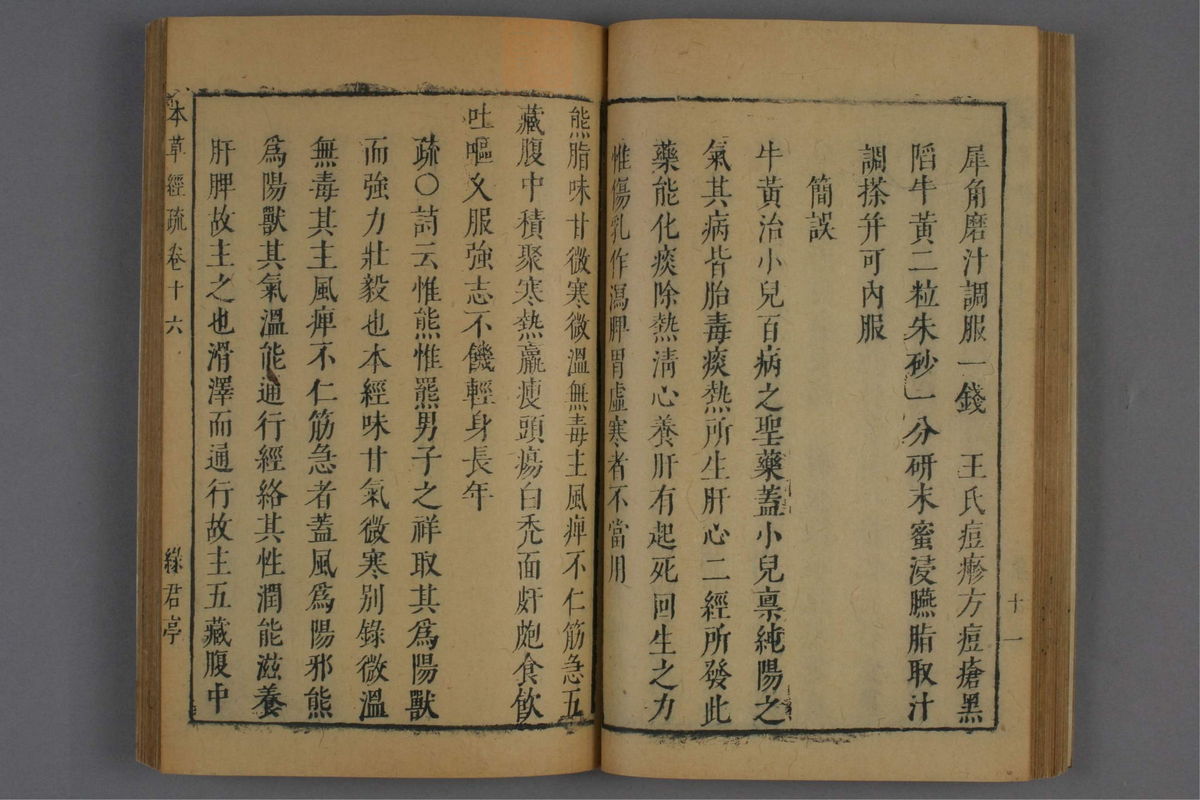 犀角磨汁調服一錢　王氏痘㾦方痘瘡黑
陷牛黃二粒朱砂一分研末蜜浸臙脂取汁
調搽幷可內服
簡誤
牛黃治小兒百病之聖藥蓋小兒禀純陽之
氣其病皆胎毒痰熱所生肝心二經所發此
藥能化痰除熱淸心養肝有起死回生之力
惟傷乳作瀉脾胃虛寒者不當用
十一
熊脂味甘微寒微溫無毒主風痹不仁筋急五
藏腹中積聚寒熱羸瘦頭瘍白禿面皯皰食飮
吐嘔久服強志不饑輕身長年
疏〇詩云惟熊惟羆男子之祥取其爲陽獸
而強力壯毅也本經味甘氣微寒别錄微溫
無毒其主風痹不仁筋急者蓋風爲陽邪熊
爲陽獸其氣溫能通行經絡其性潤能滋養
肝脾故主之也滑澤而通行故主五藏腹中
本草經疏卷十六　綠君亭